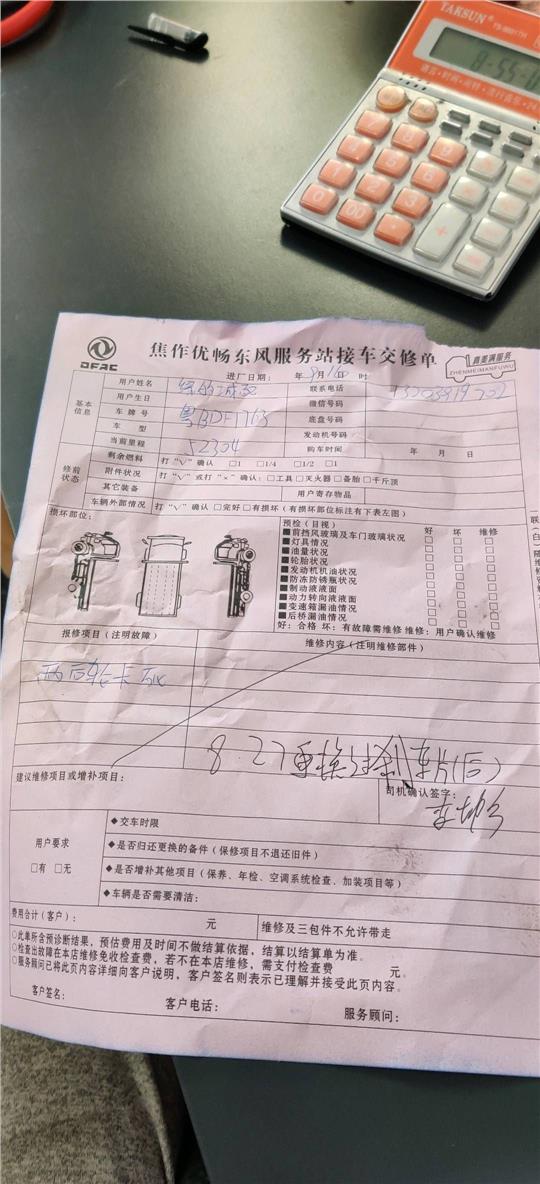 TAKSUN
8-55-
DFAC
焦作优畅东风服务站接车交修单
真美满服务
ZHENMEIMANFUWU
进厂日期: 年 9月1日 时
基本信息
用户姓名 联系电话
用户生日 微信号码
车牌号 粤BDF1763 底盘号码
车型 发动机号码
当前里程 52304 购车时间 年 月 日
修前状态
剩余燃料 打“√”确认 □1 □1/4 □1/2 □1
附件状况 打“√”或打“×”确认:□工具□灭火器□备胎□千斤顶
其它装备 用户寄存物品
车辆外部情况 打“√”确认 □完好□有损坏(有损坏部位标注有下表左图)
损坏部位:
预检(目视) 好 坏 维修
■前挡风玻璃及车门玻璃状况 □ □ □
■灯具情况 □ □ □
■油量状况 □ □ □
■轮胎状况 □ □ □
■发动机机油状况 □ □ □
■防冻防锈瓶状况 □ □ □
■制动液液面 □ □ □
■动力转向液液面 □ □ □
■变速箱漏油情况 □ □ □
■后桥漏油情况 □ □ □
好:合格 坏:有故障需维修 维修:用户确认维修
报修项目(注明故障) 维修内容(注明维修部件)
两后轮卡死
8.27更换过刹车片(后)
建议维修项目或增补项目:
司机确认签字:
用户要求
□有 □无
◆交车时限
◆是否归还更换的备件(保修项目不退还旧件)
◆是否增补其他项目(保养、年检、空调系统检查、加装项目等)
◆车辆是否需要清洁:
费用合计(客户): 元 维修及三包件不允许带走
○此单所含预诊断结果,预估费用及时间不做结算依据,结算以结算单为准。
○检查出故障在本店维修免收检查费,若不在本店维修,需支付检查费 元。
○服务顾问已将此页内容详细向客户说明,客户签名则表示已理解并接受此页内容。
客户签名: 客户电话: 服务顾问: